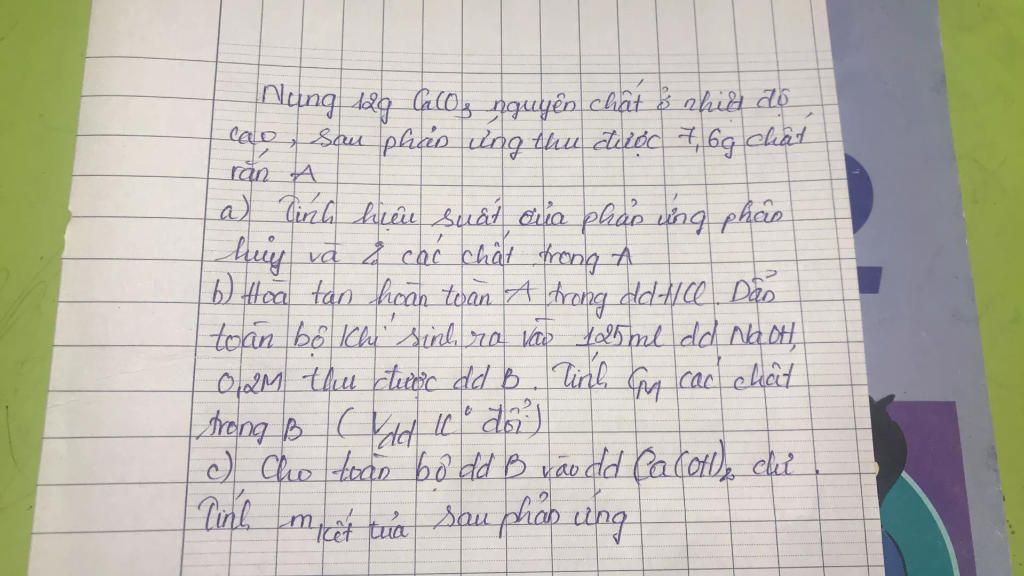 Nung 12g CaCO3 nguyên chất ở nhiệt độ
cao, sau phản ứng thu được 7,6g chất
rắn A
a) Tính hiệu suất của phản ứng phân
hủy và % các chất trong A
b) Hoà tan hoàn toàn A trong dd HCl. Dẫn
toàn bộ khí sinh ra vào 125ml dd NaOH
0,2M thu được dd B. Tính CM các chất
trong B (Vdd K° đổi)
c) Cho toàn bộ dd B vào dd Ca(OH)2 dư.
Tính mkết tủa sau phản ứng